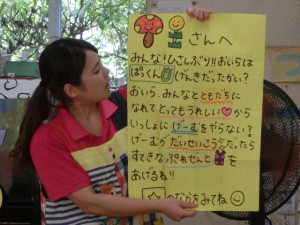 さんへ
みんな！ひさしぶり!!おいらは
ぱっくん げんきだったかい？
おいら、みんなとともだちに
なれてとってもうれしい から
いっしょにげーむをやらない？
げーむがだいせいこうだったら
すてきなぷれぜんと を
あげるね!!
のなかをみてね